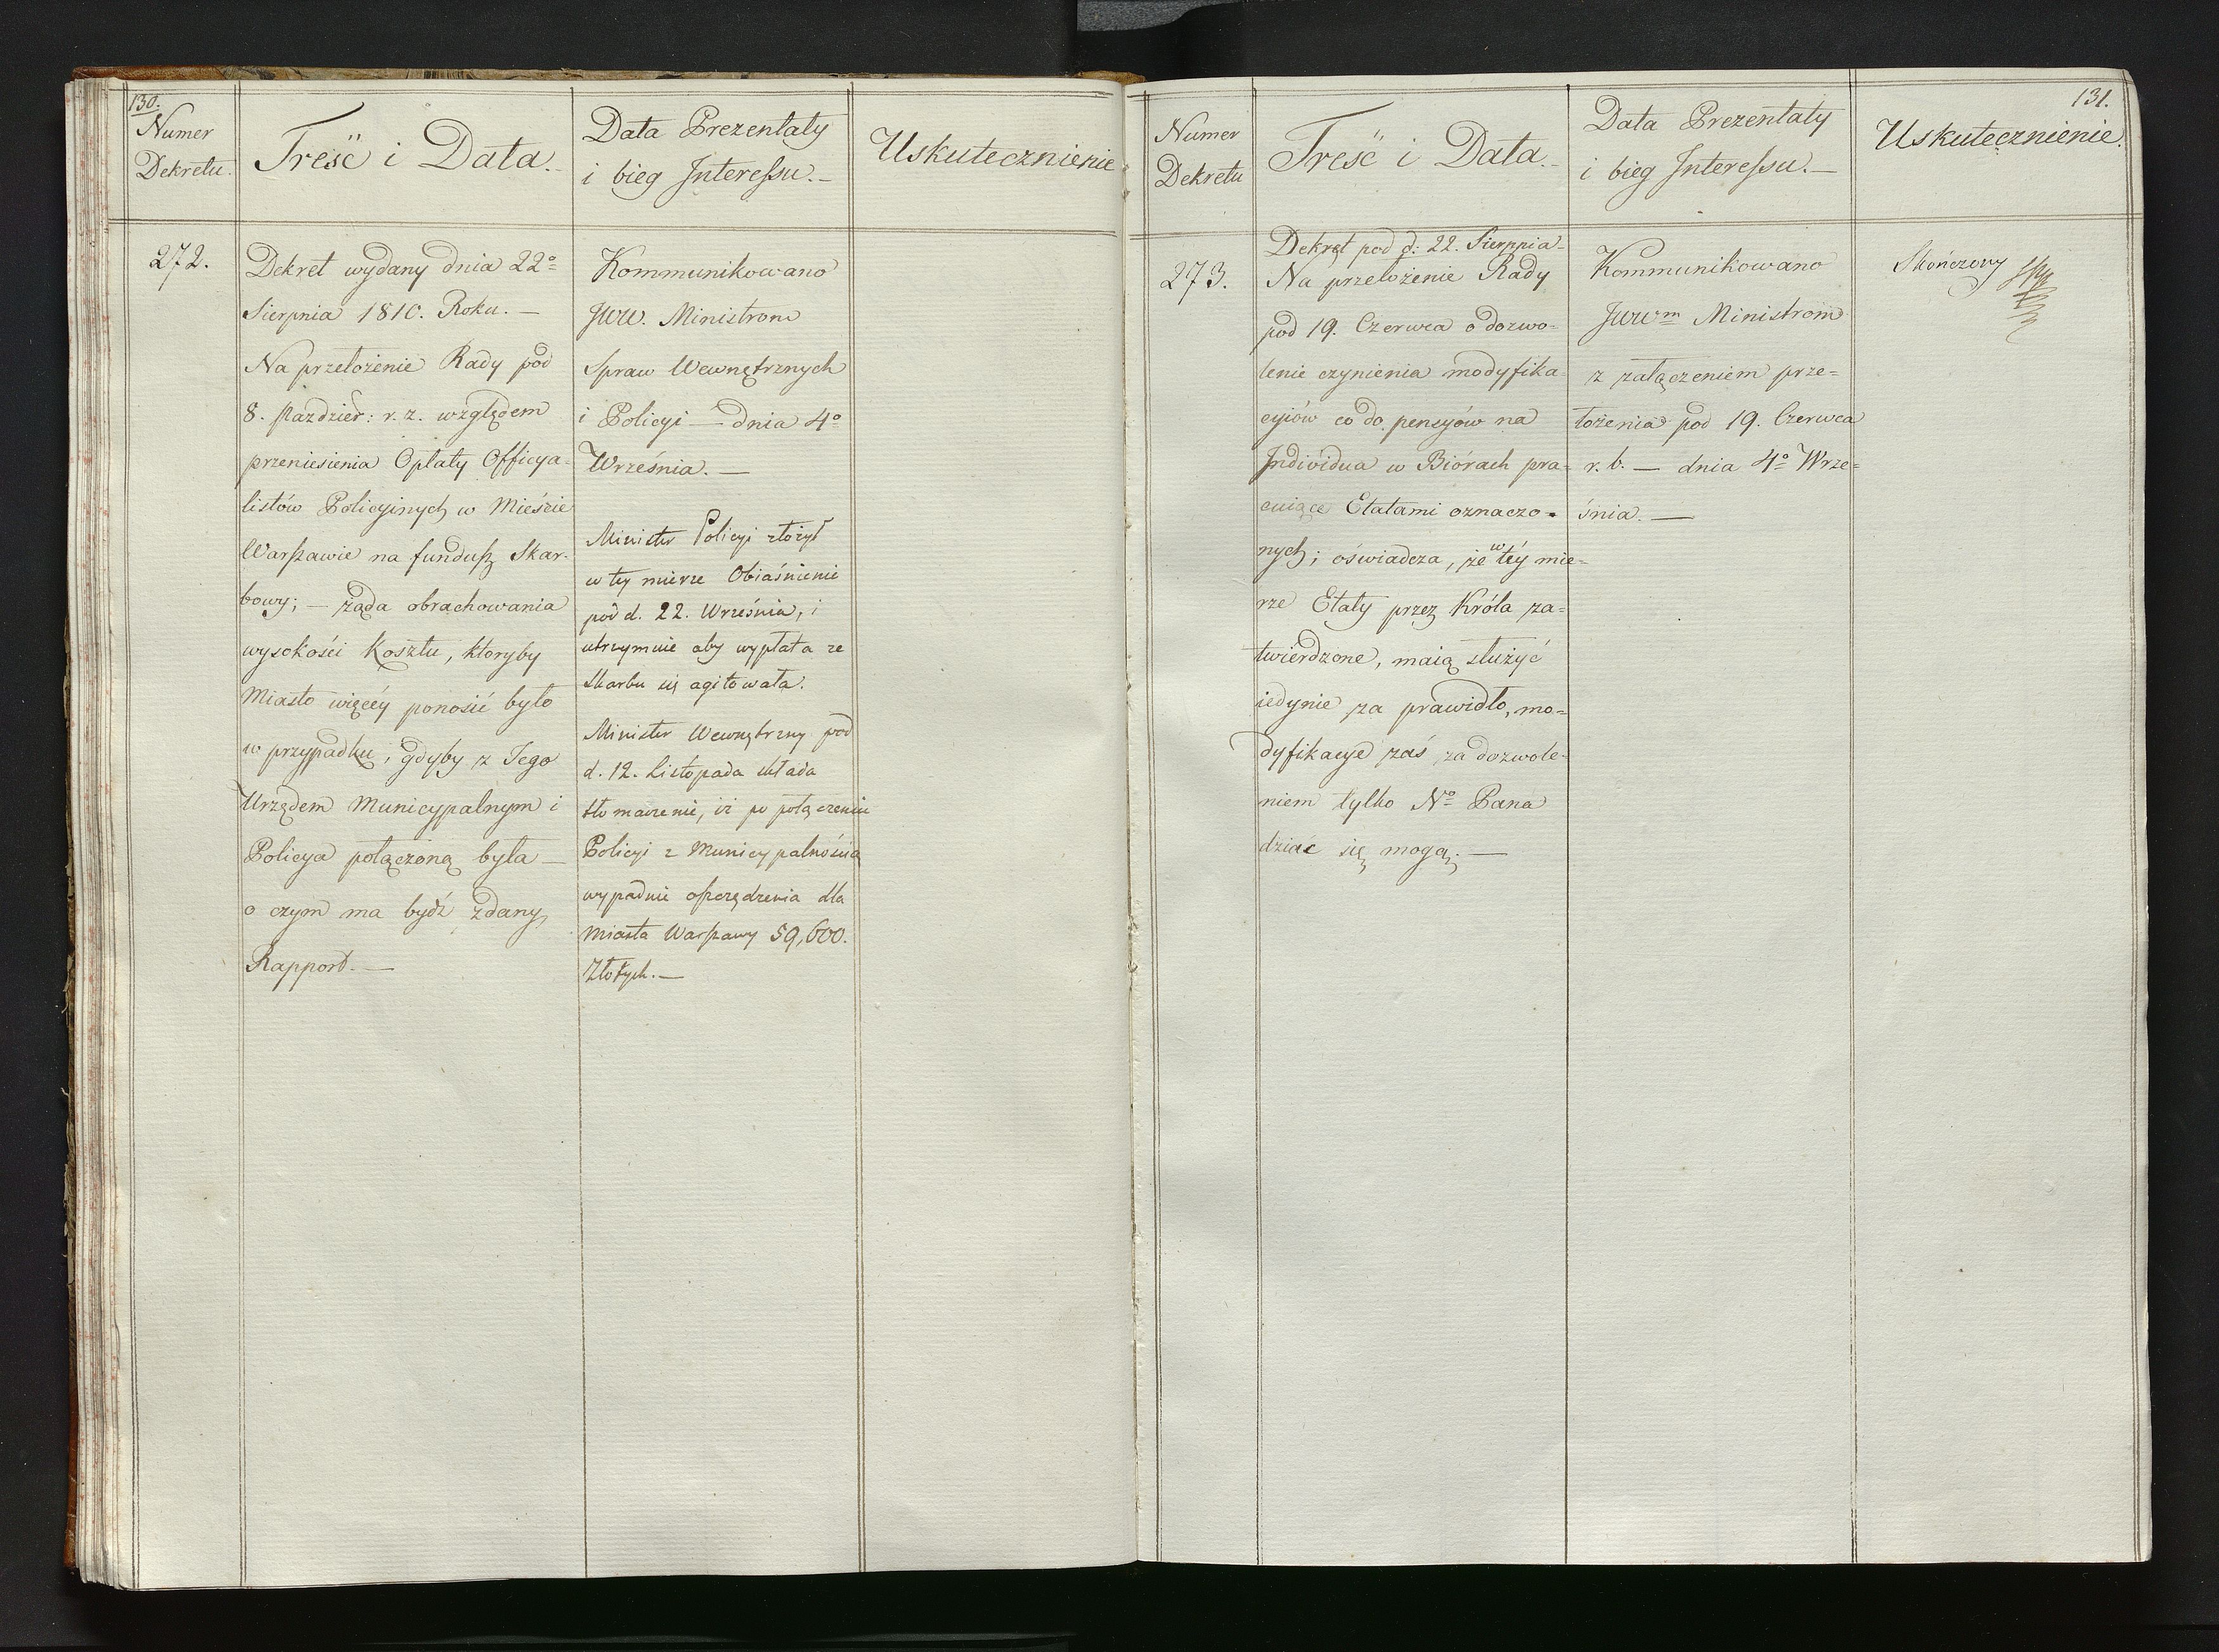 130.
Numer
Dekretu.
Treść i Data.
Data Prezentaty
i bieg Interessu.—
Uskutecznienie
272.
Dekret wydany dnia 22º
Sierpnia 1810. Roku.—
Na przełożenie Rady pod
8. Paździer: r. z. względem
przeniesienia Opłaty Officya=
listów Policyinych w Mieście
Warszawie na fundusz Skar-
bowy;— żąda obrachowania
wysokości Kosztu, któryby
Miasto więcéy ponosić było
w przypadku, gdyby z Jego
Urzędem Municypalnym i
Policya połączoną była—
o czym ma bydź zdany
Rapport.—
Kommunikowano
JWW. Ministrom
Spraw Wewnętrznych
i Policyi — dnia 4º
Września.—
Minister Policyi złożył
w tey mierze Obiaśnienie
pod d. 22. Września, i
utrzymuie aby wypłata ze
Skarbu się agitowała.
Minister Wewnętrzny pod
d. 12. Listopada składa
tłomaczenie, iż po połączeniu
Policyi z Municypalnością
wypadnie oszczędzenia dla
Miasta Warszawy 59,600.
Złotych.—
131.
Numer
Dekretu
Treść i Data.—
Data Prezentaty
i bieg Interessu.—
Uskutecznienie.
273.
Dekret pod d: 22. Sierpnia—
Na przełożenie Rady
pod 19. Czerwca o dozwo-
lenie czynienia modyfika-
cyiów co do pensyów na
Individua w Biórach pra-
cuiące Etatami oznaczo-
nych; oświadcza, że w téy mie=
rze Etaty przez Króla za=
twierdzone, maią służyć
iedynie za prawidło, mo=
dyfikacye zaś za dozwole-
niem tylko Nº Pana
dziać się mogą.—
Kommunikowano
JWWm Ministrom
z załączeniem prze=
łożenia pod 19. Czerwca
r. b.— dnia 4º Wrze=
śnia.—
Skończony